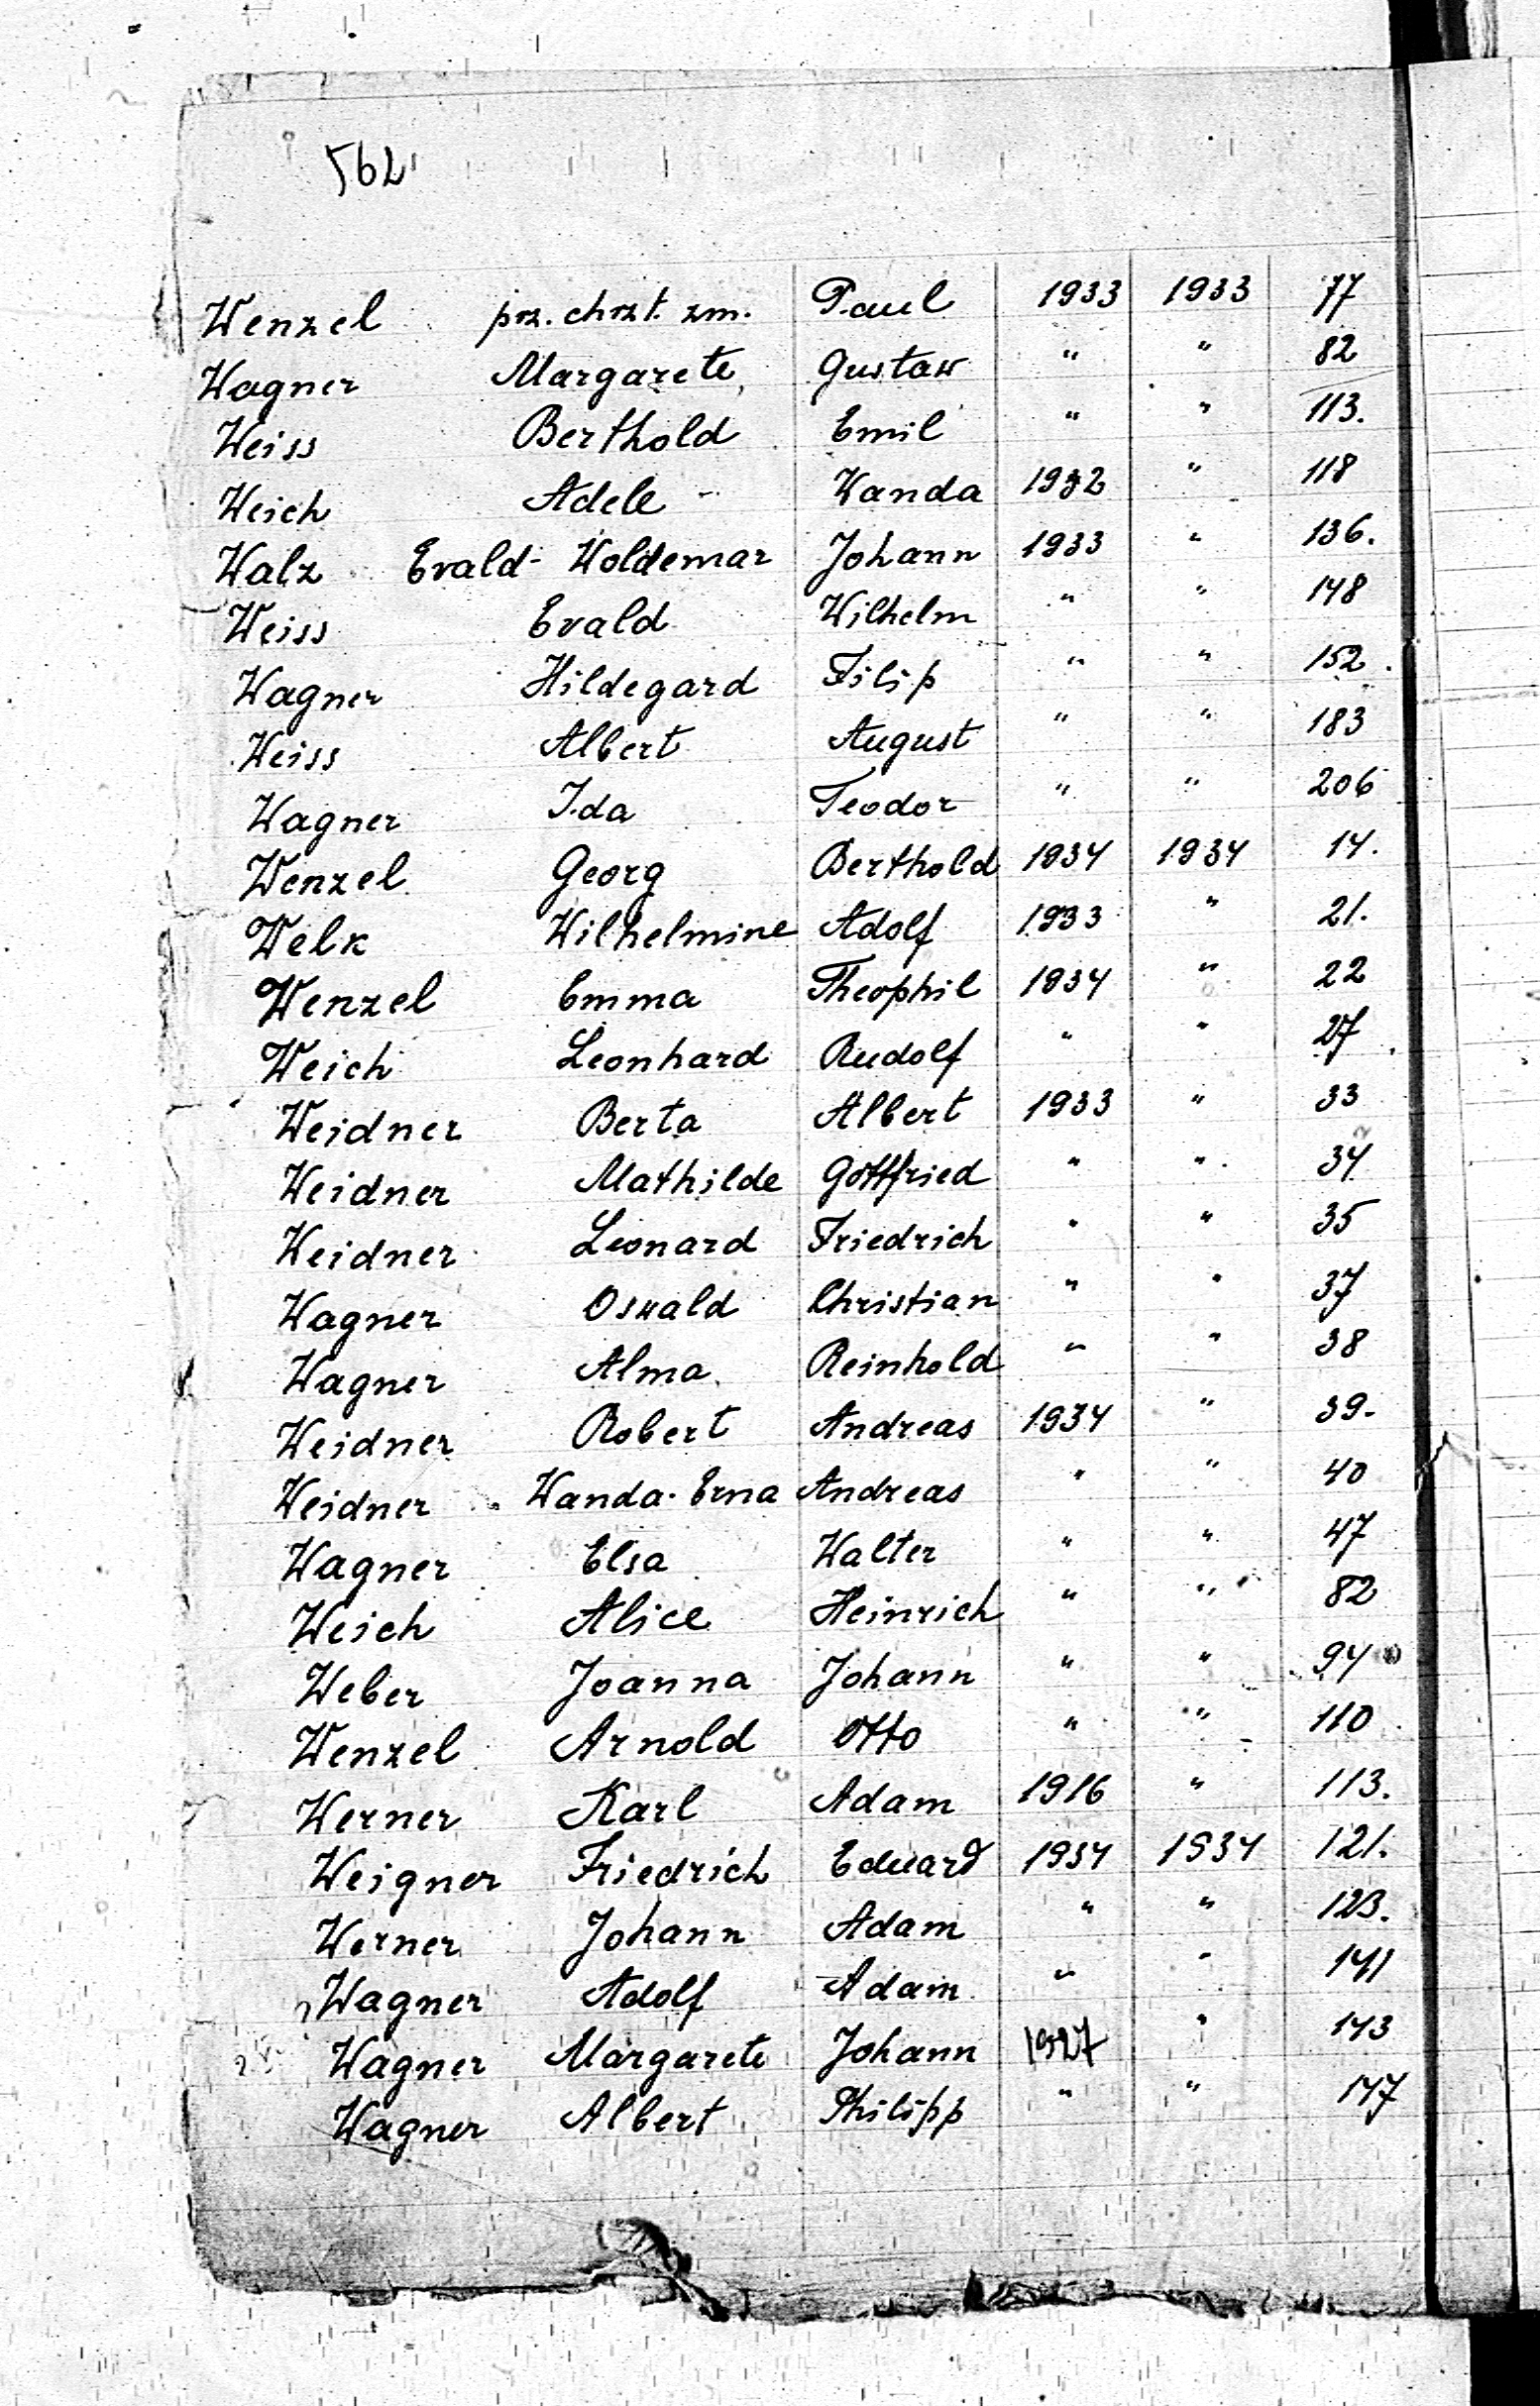 562
Wenzel prz. chrzt. zm. Paul 1933 1933 77
Wagner Margarete, Gustaw " " 82
Weiss Berthold Emil " " 113.
Weich Adele Wanda 1932 " 118
Walz Evald- Woldemar Johann 1933 " 136.
Weiss Evald Wilhelm " " 148
Wagner Hildegard Filip " " 152.
Weiss Albert August " " 183
Wagner Ida Teodor " " 206
Wenzel Georg Berthold 1934 1934 14.
Welk Wilhelmine Adolf 1933 " 21.
Wenzel Emma Theophil 1934 " 22
Weich Leonhard Rudolf " " 27
Weidner Berta Albert 1933 " 33
Weidner Mathilde Gottfried " " 34
Weidner Leonard Friedrich " " 35
Wagner Oswald Christian " " 37
Wagner Alma Reinhold " " 38
Weidner Robert Andreas 1934 " 39.
Weidner Wanda-Erna Andreas " " 40
Wagner Elsa Walter " " 47
Weich Alice Heinrich " " 82
Weber Joanna Johann " " 94
Wenzel Arnold Otto " " 110
Werner Karl Adam 1916 " 113.
Weigner Friedrich Eduard 1934 1934 121.
Werner Johann Adam " " 123.
Wagner Adolf Adam " " 141
Wagner Margarete Johann 1927 " 143
Wagner Albert Philipp " " 147